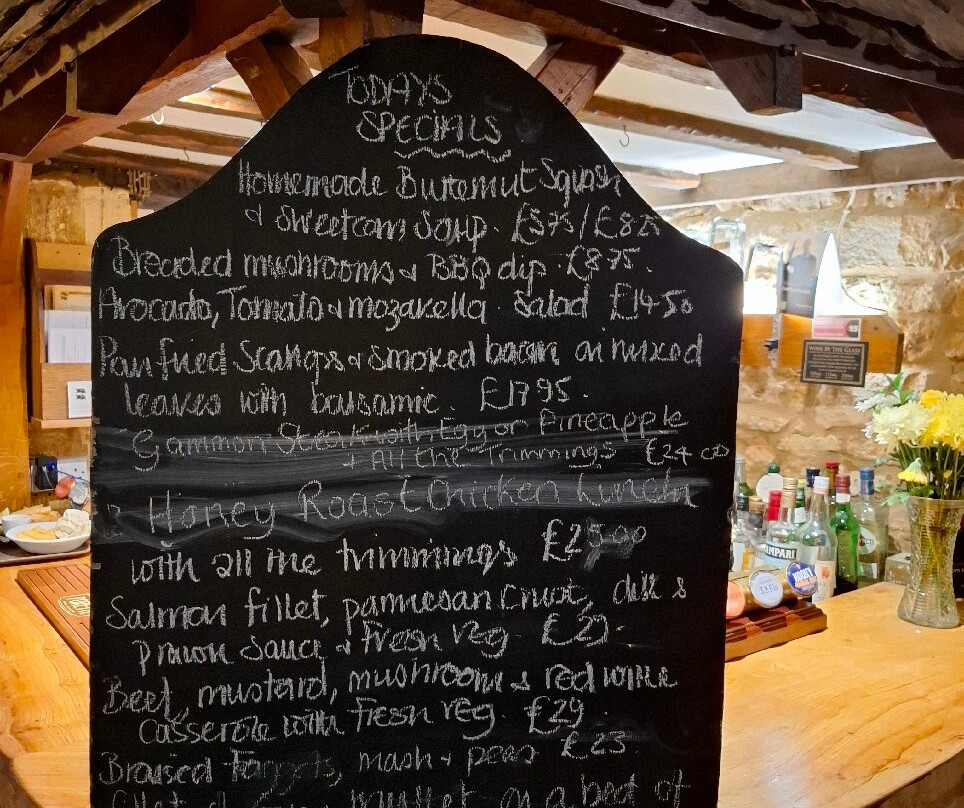 TODAYS
SPECIALS
Homemade Butternut Squash
& Sweetcorn Soup. £5.75/£8.25
Breaded mushrooms & BBQ dip. £8.75.
Avocado, Tomato & mozarella Salad £14.50
Pan fried Scallops & smoked bacon on mixed
leaves with balsamic. £17.95.
Gammon Steak with Egg or Pineapple
+ All the Trimmings £24.00
Honey Roast Chicken Lunch
with all the trimmings £25.00
Salmon fillet, parmesan crust, dill &
prawn Sauce & fresh veg. £29.
Beef, mustard, mushroom & red wine
Casserole with fresh veg. £29.
£25.
Braised Faggots, mash & peas
mullet on a bed of
WINE BY THE GLASS
CAMPARI